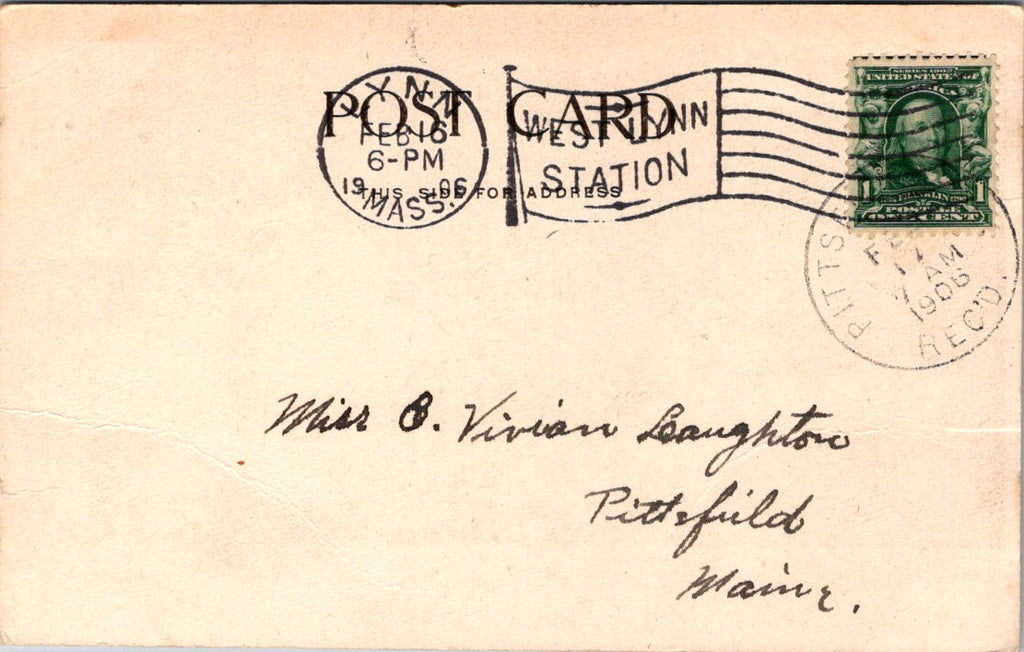 POST CARD
LYNN
FEB 16
6-PM
19 06
MASS.
WEST LYNN
STATION
THIS SIDE FOR ADDRESS
SERIES 1902
UNITED STATES OF
AMERICA
1 FRANKLIN 1
POSTAGE
ONE CENT
AM
1906
REC'D.
Miss C. Vivian Laughton
Pittsfield
Maine.